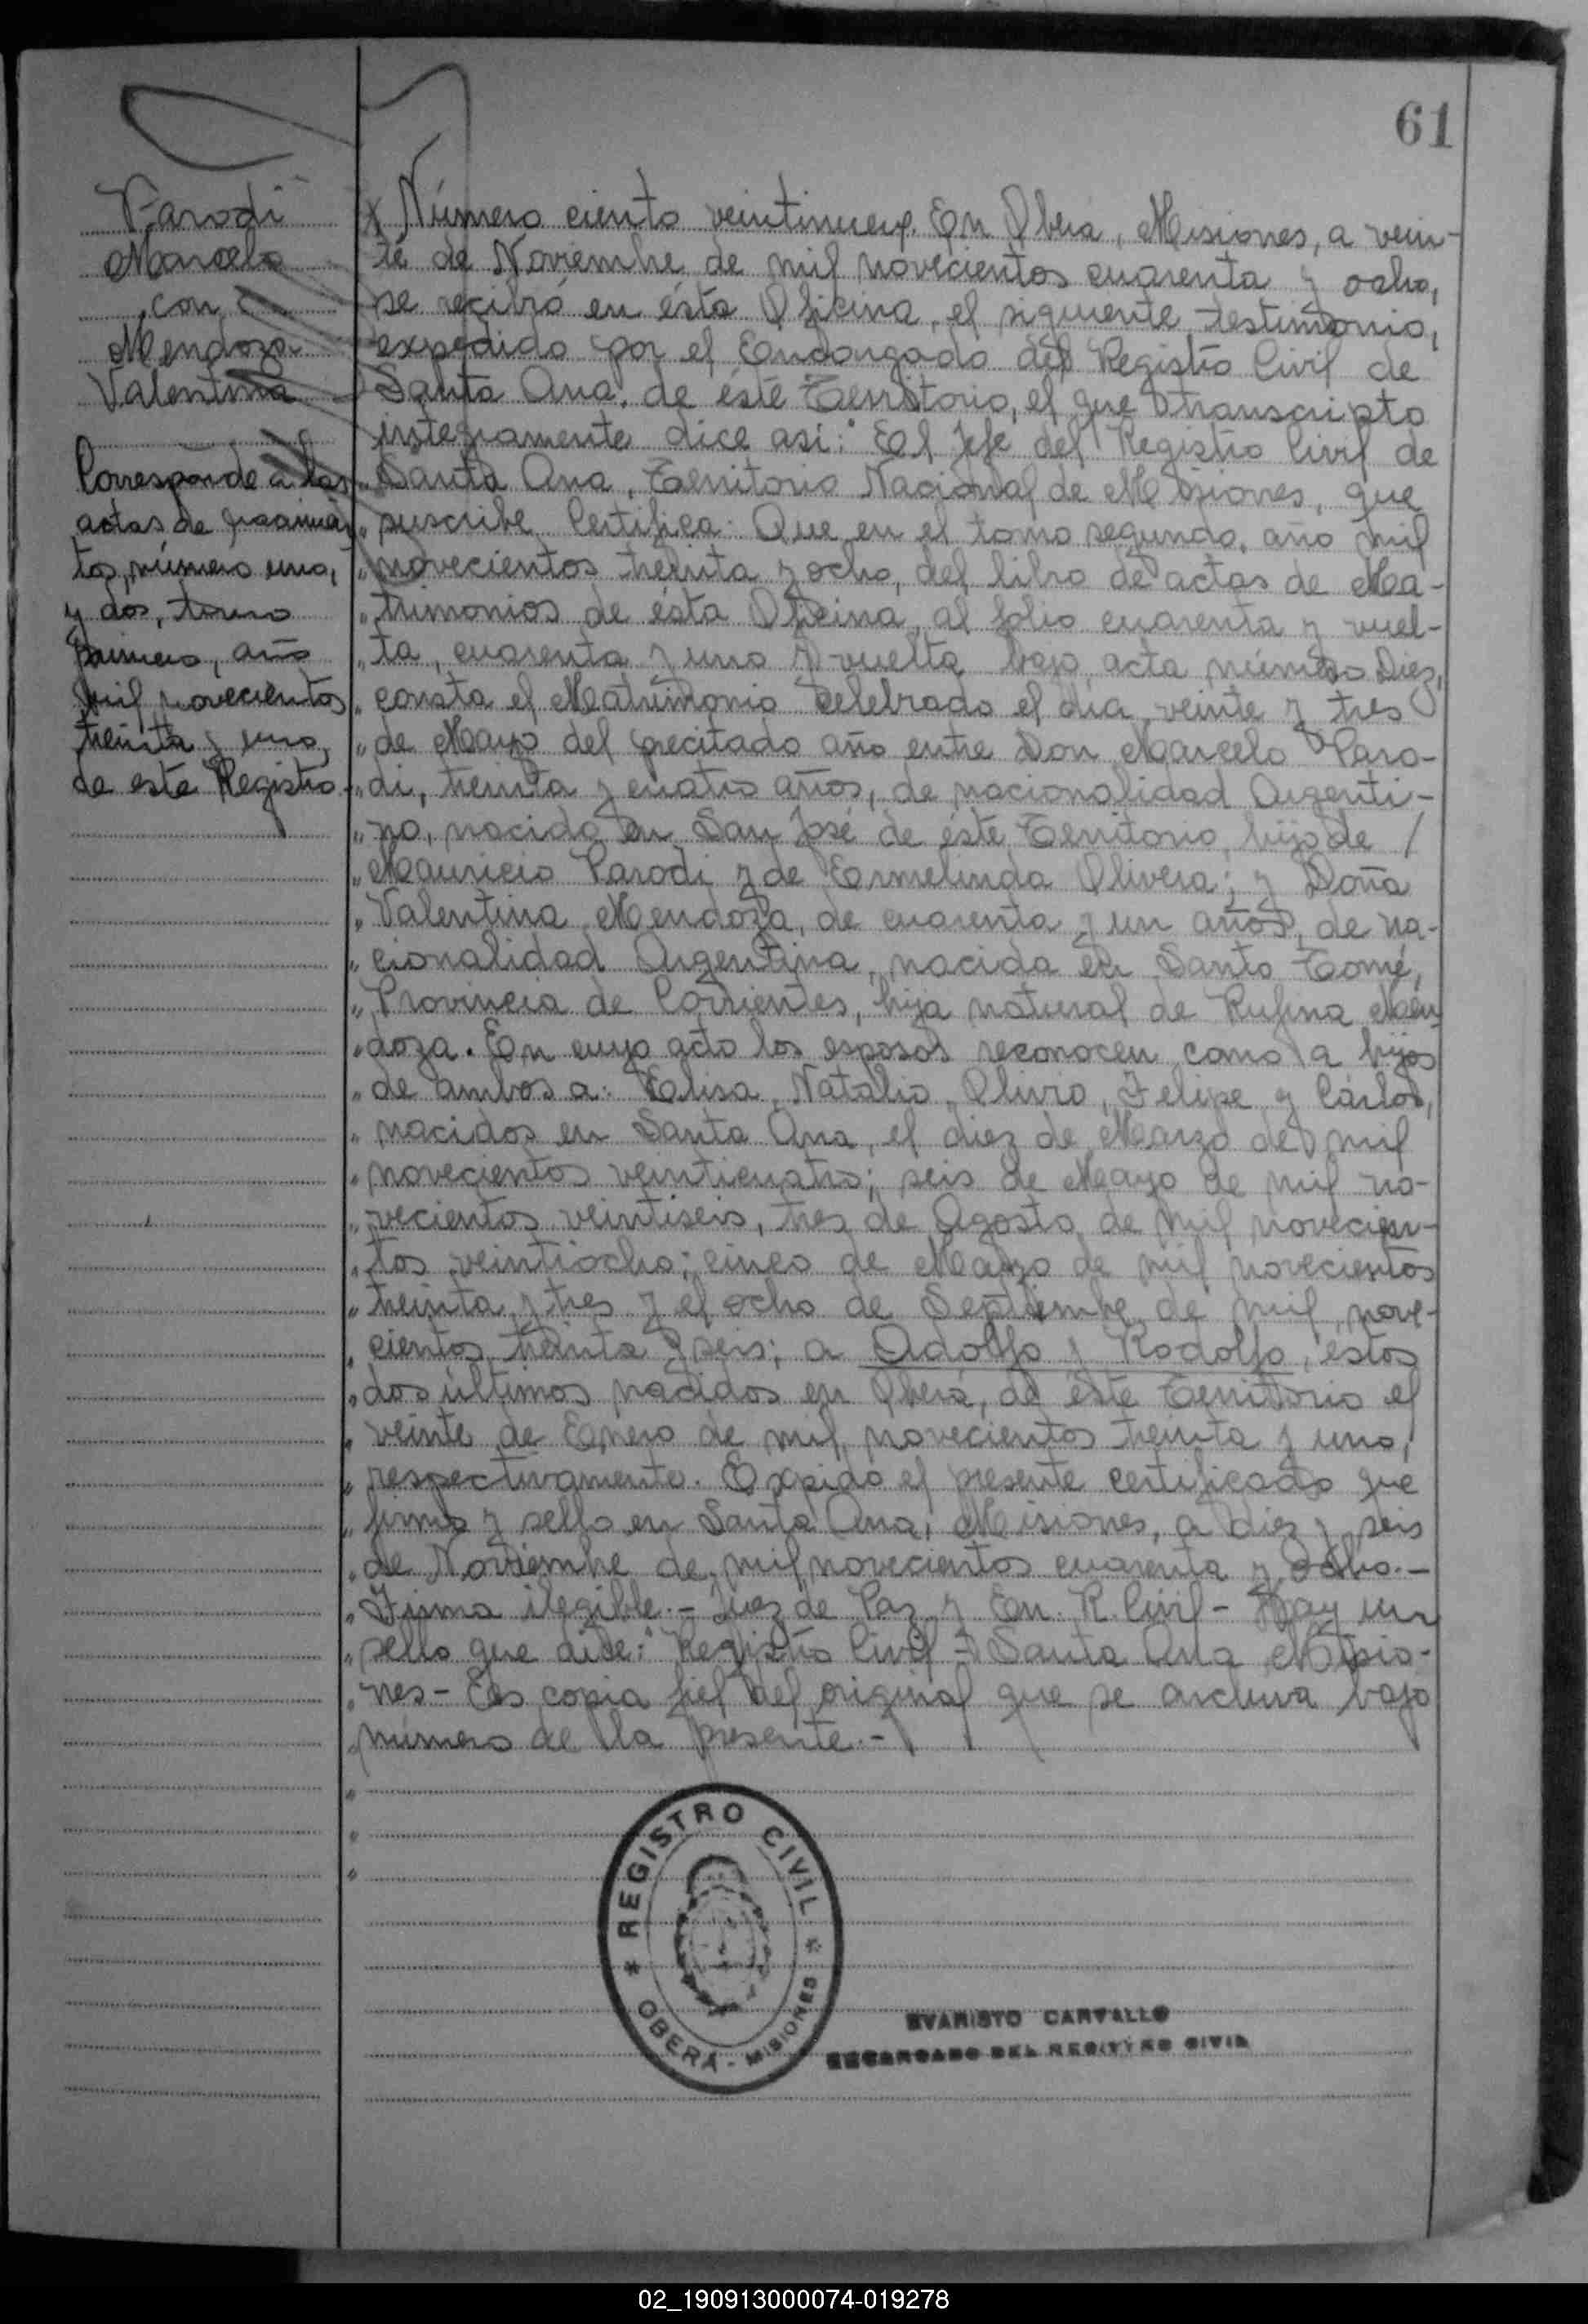 61
Parodi
Marcelo
con
Mendoza
Valentina
Corresponde a las
actas de nacimien
tos, número uno,
y dos, tomo
primero, año
mil novecientos
treinta y uno,
de este Registro.-
Número ciento veintinueve. En Oberá, Misiones, a vein-
te de Noviembre de mil novecientos cuarenta y ocho,
se recibió en ésta Oficina, el siguiente testimonio,
expedido por el Encargado del Registro Civil de
Santa Ana, de éste Territorio, el que transcripto
integramente dice así: "El Jefe del Registro Civil de
" Santa Ana, Territorio Nacional de Misiones, que
" suscribe Certifica: Que en el tomo segundo, año mil
" novecientos treinta y ocho, del libro de actas de Ma-
" trimonios de ésta Oficina, al folio cuarenta y vuel-
" ta, cuarenta y uno y vuelta bajo acta número Diez,
" consta el Matrimonio celebrado el día veinte y tres
" de Mayo del precitado año entre Don Marcelo Paro-
" di, treinta y cuatro años, de nacionalidad Argenti-
" no, nacido en San José de éste Territorio, hijo de /
" Mauricio Parodi y de Ermelinda Olivera; y Doña
" Valentina Mendoza, de cuarenta y un años, de na-
" cionalidad Argentina, nacida en Santo Tomé,
" Provincia de Corrientes, hija natural de Rufina Men
" doza. En cuyo acto los esposos reconocen como a hijos
" de ambos a: Elisa, Natalio, Olivio, Felipe y Cárlos,
" nacidos en Santa Ana, el diez de Marzo de mil
" novecientos veinticuatro; seis de Mayo de mil no-
" vecientos veintiseis, tres de Agosto de mil novecien-
" tos veintiocho; cinco de Marzo de mil novecientos
" treinta y tres y el ocho de Septiembre de mil nove-
" cientos treinta y seis; a Adolfo y Rodolfo, éstos
" dos últimos nacidos en Oberá, de éste Territorio el
" veinte de Enero de mil novecientos treinta y uno,
" respectivamente. Expido el presente certificado que
" firmo y sello en Santa Ana, Misiones, a diez y seis
" de Noviembre de mil novecientos cuarenta y ocho.-
" Firma ilegible.- Juez de Paz y En. R. Civil - Hay un
" sello que dice: "Registro Civil - Santa Ana Misio-
" nes- Es copia fiel del original que se archiva bajo
" número de la presente.-
REGISTRO CIVIL
OBERÁ - MISIONES
EVARISTO CARVALLO
ENCARGADO DEL REGISTRO CIVIL
02_190913000074-019278